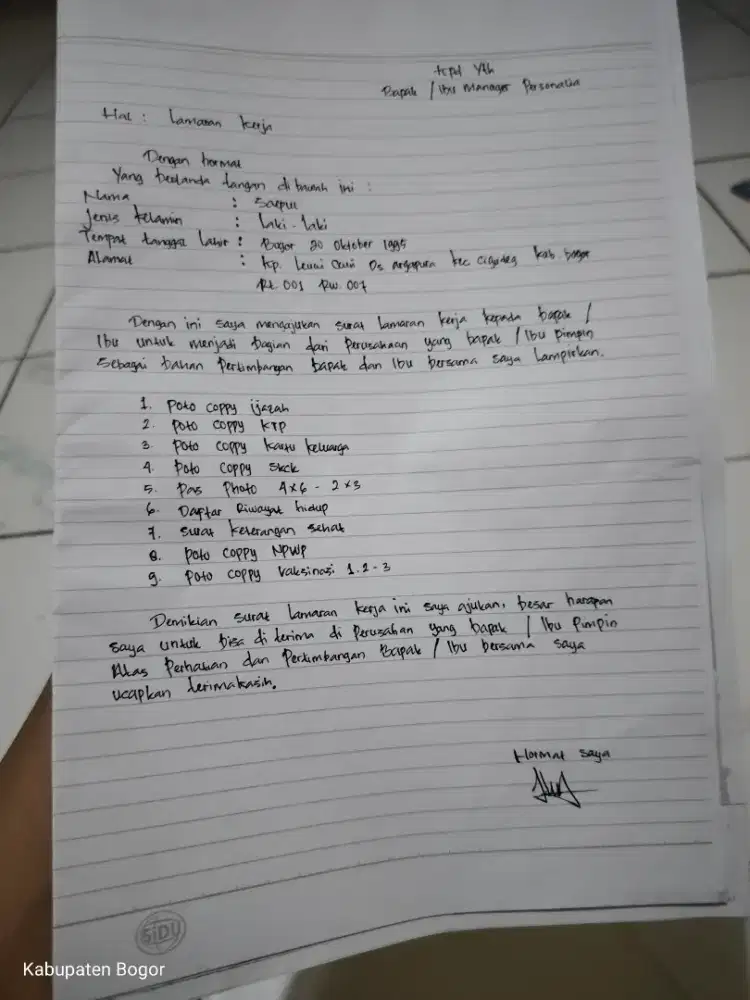 kepd Yth
Bapak / Ibu Manager Personalia
Hal : Lamaran kerja
Dengan hormat
Yang bertanda tangan di bawah ini :
Nama : Saepul
Jenis kelamin : Laki - Laki
Tempat tanggal Lahir : Bogor 20 Oktober 1995
Alamat : kp. Leuwi Ds argapura kec cigudeg kab. bogor
Rt 001 Rw 007
Dengan ini saya mengajukan surat lamaran kerja kepada bapak /
Ibu untuk menjadi bagian dari Perusahaan yang bapak / Ibu Pimpin
Sebagai bahan Pertimbangan bapak dan Ibu bersama saya Lampirkan.
1. Poto coppy ijazah
2. Poto coppy KTP
3. Poto coppy kartu keluarga
4. Poto coppy Skck
5. Pas Photo 4x6 - 2x3
6. Daptar Riwayat hidup
7. Surat keterangan sehat
8. Poto coppy NPWP
9. Poto coppy Vaksinasi 1.2-3
Demikian surat lamaran kerja ini saya ajukan, besar harapan
saya untuk bisa di terima di Perusahan yang bapak / Ibu Pimpin
Atas Perhatian dan Pertimbangan Bapak / Ibu bersama saya
ucapkan terimakasih.
Hormat saya
SiDU
Kabupaten Bogor